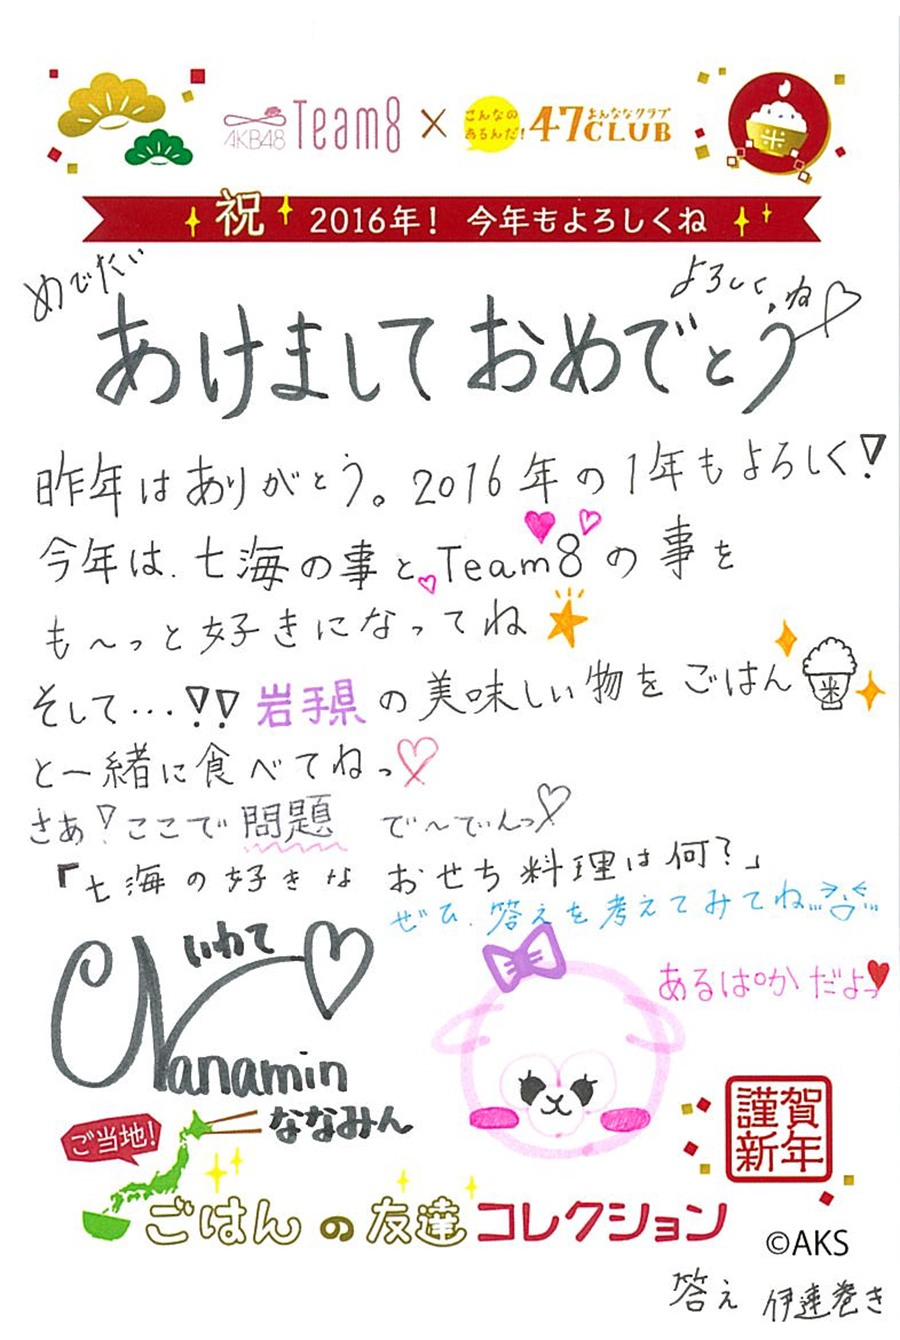 AKB48 Team8 × こんなのあるんだ! 47CLUB よんななクラブ
祝 2016年! 今年もよろしくね
めでたい
よろしくね
あけましておめでとう
昨年はありがとう。2016年の1年もよろしく!
今年は、七海の事と、Team8の事を
も〜っと好きになってね
そして…!! 岩手県の美味しい物をごはん
米
と一緒に食べてねっ
さあ!ここで問題 で〜でぃんっ
「七海の好きなおせち料理は何?」
ぜひ、答えを考えてみてね…
いわて
Nanamin
ななみん
あるぱかだよっ
謹賀新年
ご当地!
ごはんの友達コレクション
©AKS
答え 伊達巻き